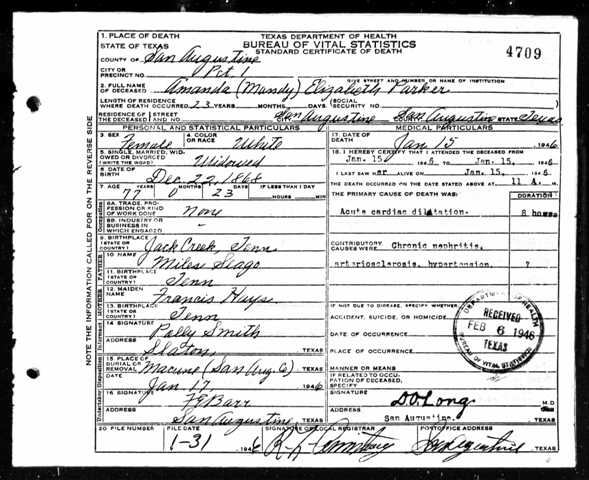 1. PLACE OF DEATH
STATE OF TEXAS
TEXAS DEPARTMENT OF HEALTH
BUREAU OF VITAL STATISTICS
STANDARD CERTIFICATE OF DEATH
4709
COUNTY OF San Augustine
CITY OR PRECINCT NO. Pct. 1
GIVE STREET AND NUMBER OR NAME OF INSTITUTION
2. FULL NAME OF DECEASED Amanda (Mandy) Elizabeth Parker
LENGTH OF RESIDENCE WHERE DEATH OCCURRED 23 YEARS MONTHS DAYS (SOCIAL SECURITY NO.
RESIDENCE OF THE DECEASED STREET AND NO. San Augustine CITY COUNTY San Augustine STATE Texas
PERSONAL AND STATISTICAL PARTICULARS
3. SEX Female
4. COLOR OR RACE White
5. SINGLE, MARRIED, WIDOWED OR DIVORCED (WRITE THE WORD) Widowed
6. DATE OF BIRTH Dec. 22, 1868
7. AGE 77 YEARS 0 MONTHS 23 DAYS IF LESS THAN 1 DAY HOURS MIN
8A. TRADE, PROFESSION OR KIND OF WORK DONE None
8B. INDUSTRY OR BUSINESS IN WHICH ENGAGED -
9. BIRTHPLACE (STATE OR COUNTRY) Jack Creek, Tenn
10. NAME Miles
11. BIRTHPLACE (STATE OR COUNTRY) Tenn
12. MAIDEN NAME Francis Hays
13. BIRTHPLACE (STATE OR COUNTRY) Tenn
14. SIGNATURE Polly Smith
ADDRESS Slaton, TEXAS
15. PLACE OF BURIAL OR REMOVAL Macune (San Aug. Co) TEXAS
DATE Jan. 17, 1946
16. SIGNATURE
ADDRESS San Augustine TEXAS
MEDICAL PARTICULARS
17. DATE OF DEATH Jan 15 1946
18. I HEREBY CERTIFY THAT I ATTENDED THE DECEASED FROM
Jan. 15 1946, TO Jan. 15, 1946
I LAST SAW HER ALIVE ON Jan. 15. 1946
THE DEATH OCCURRED ON THE DATE STATED ABOVE AT 11 A. M.
THE PRIMARY CAUSE OF DEATH WAS: DURATION
Acute cardiac dilatation. 8 hours
CONTRIBUTORY CAUSES WERE: Chronic nephritis,
arteriosclerosis, hypertension. ?
IF NOT DUE TO DISEASE, SPECIFY WHETHER:
ACCIDENT, SUICIDE, OR HOMICIDE
DATE OF OCCURRENCE
PLACE OF OCCURRENCE
MANNER OR MEANS
IF RELATED TO OCCUPATION OF DECEASED, SPECIFY
SIGNATURE D O Long M.D
ADDRESS San Augustine, TEXAS
DEPARTMENT OF HEALTH
RECEIVED
FEB 6 1946
TEXAS
BUREAU OF VITAL STATISTICS
20 FILE NUMBER
FILE DATE 1-31 1946
SIGNATURE OF LOCAL REGISTRAR
POSTOFFICE ADDRESS San Augustine TEXAS
NOTE THE INFORMATION CALLED FOR ON THE REVERSE SIDE